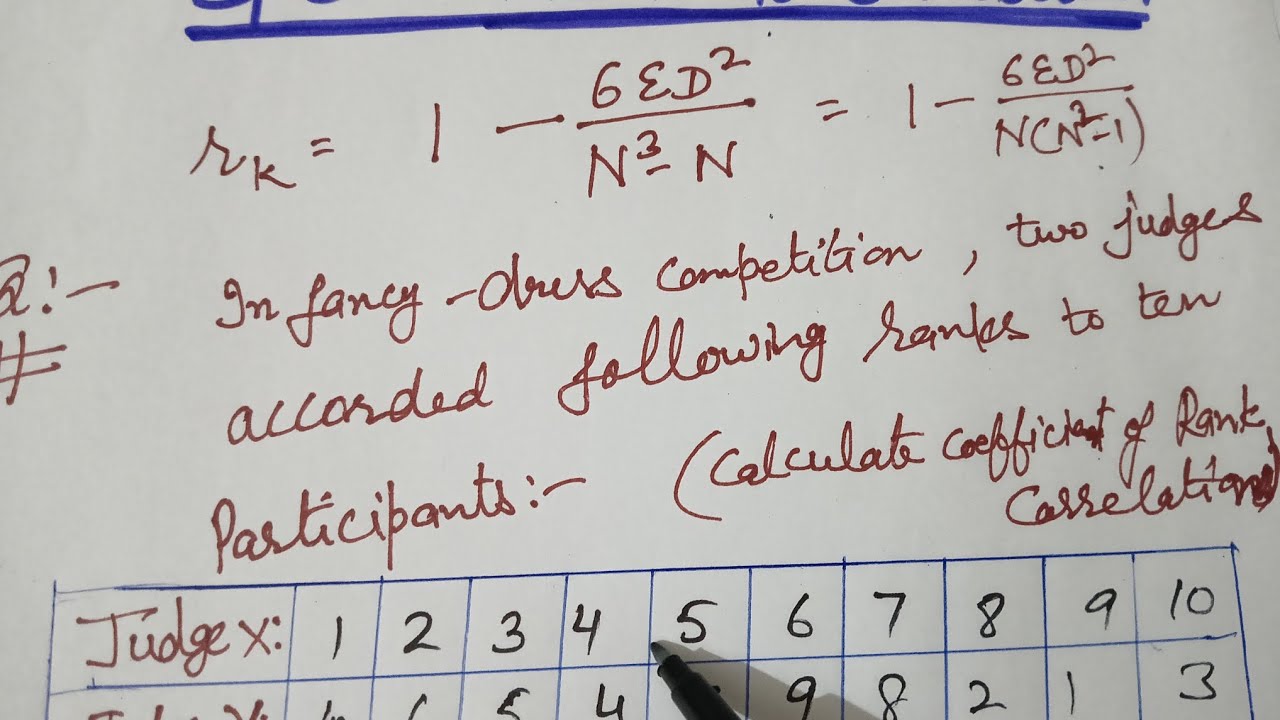 r_k = 1 - 6ΣD² / N³ - N = 1 - 6ΣD² / N(N² - 1)
Q:-
In fancy-dress competition, two judges
accorded following ranks to ten
Participants:- (Calculate coefficient of Rank
Correlation)
Judge X: 1 2 3 4 5 6 7 8 9 10
4 9 8 2 1 3